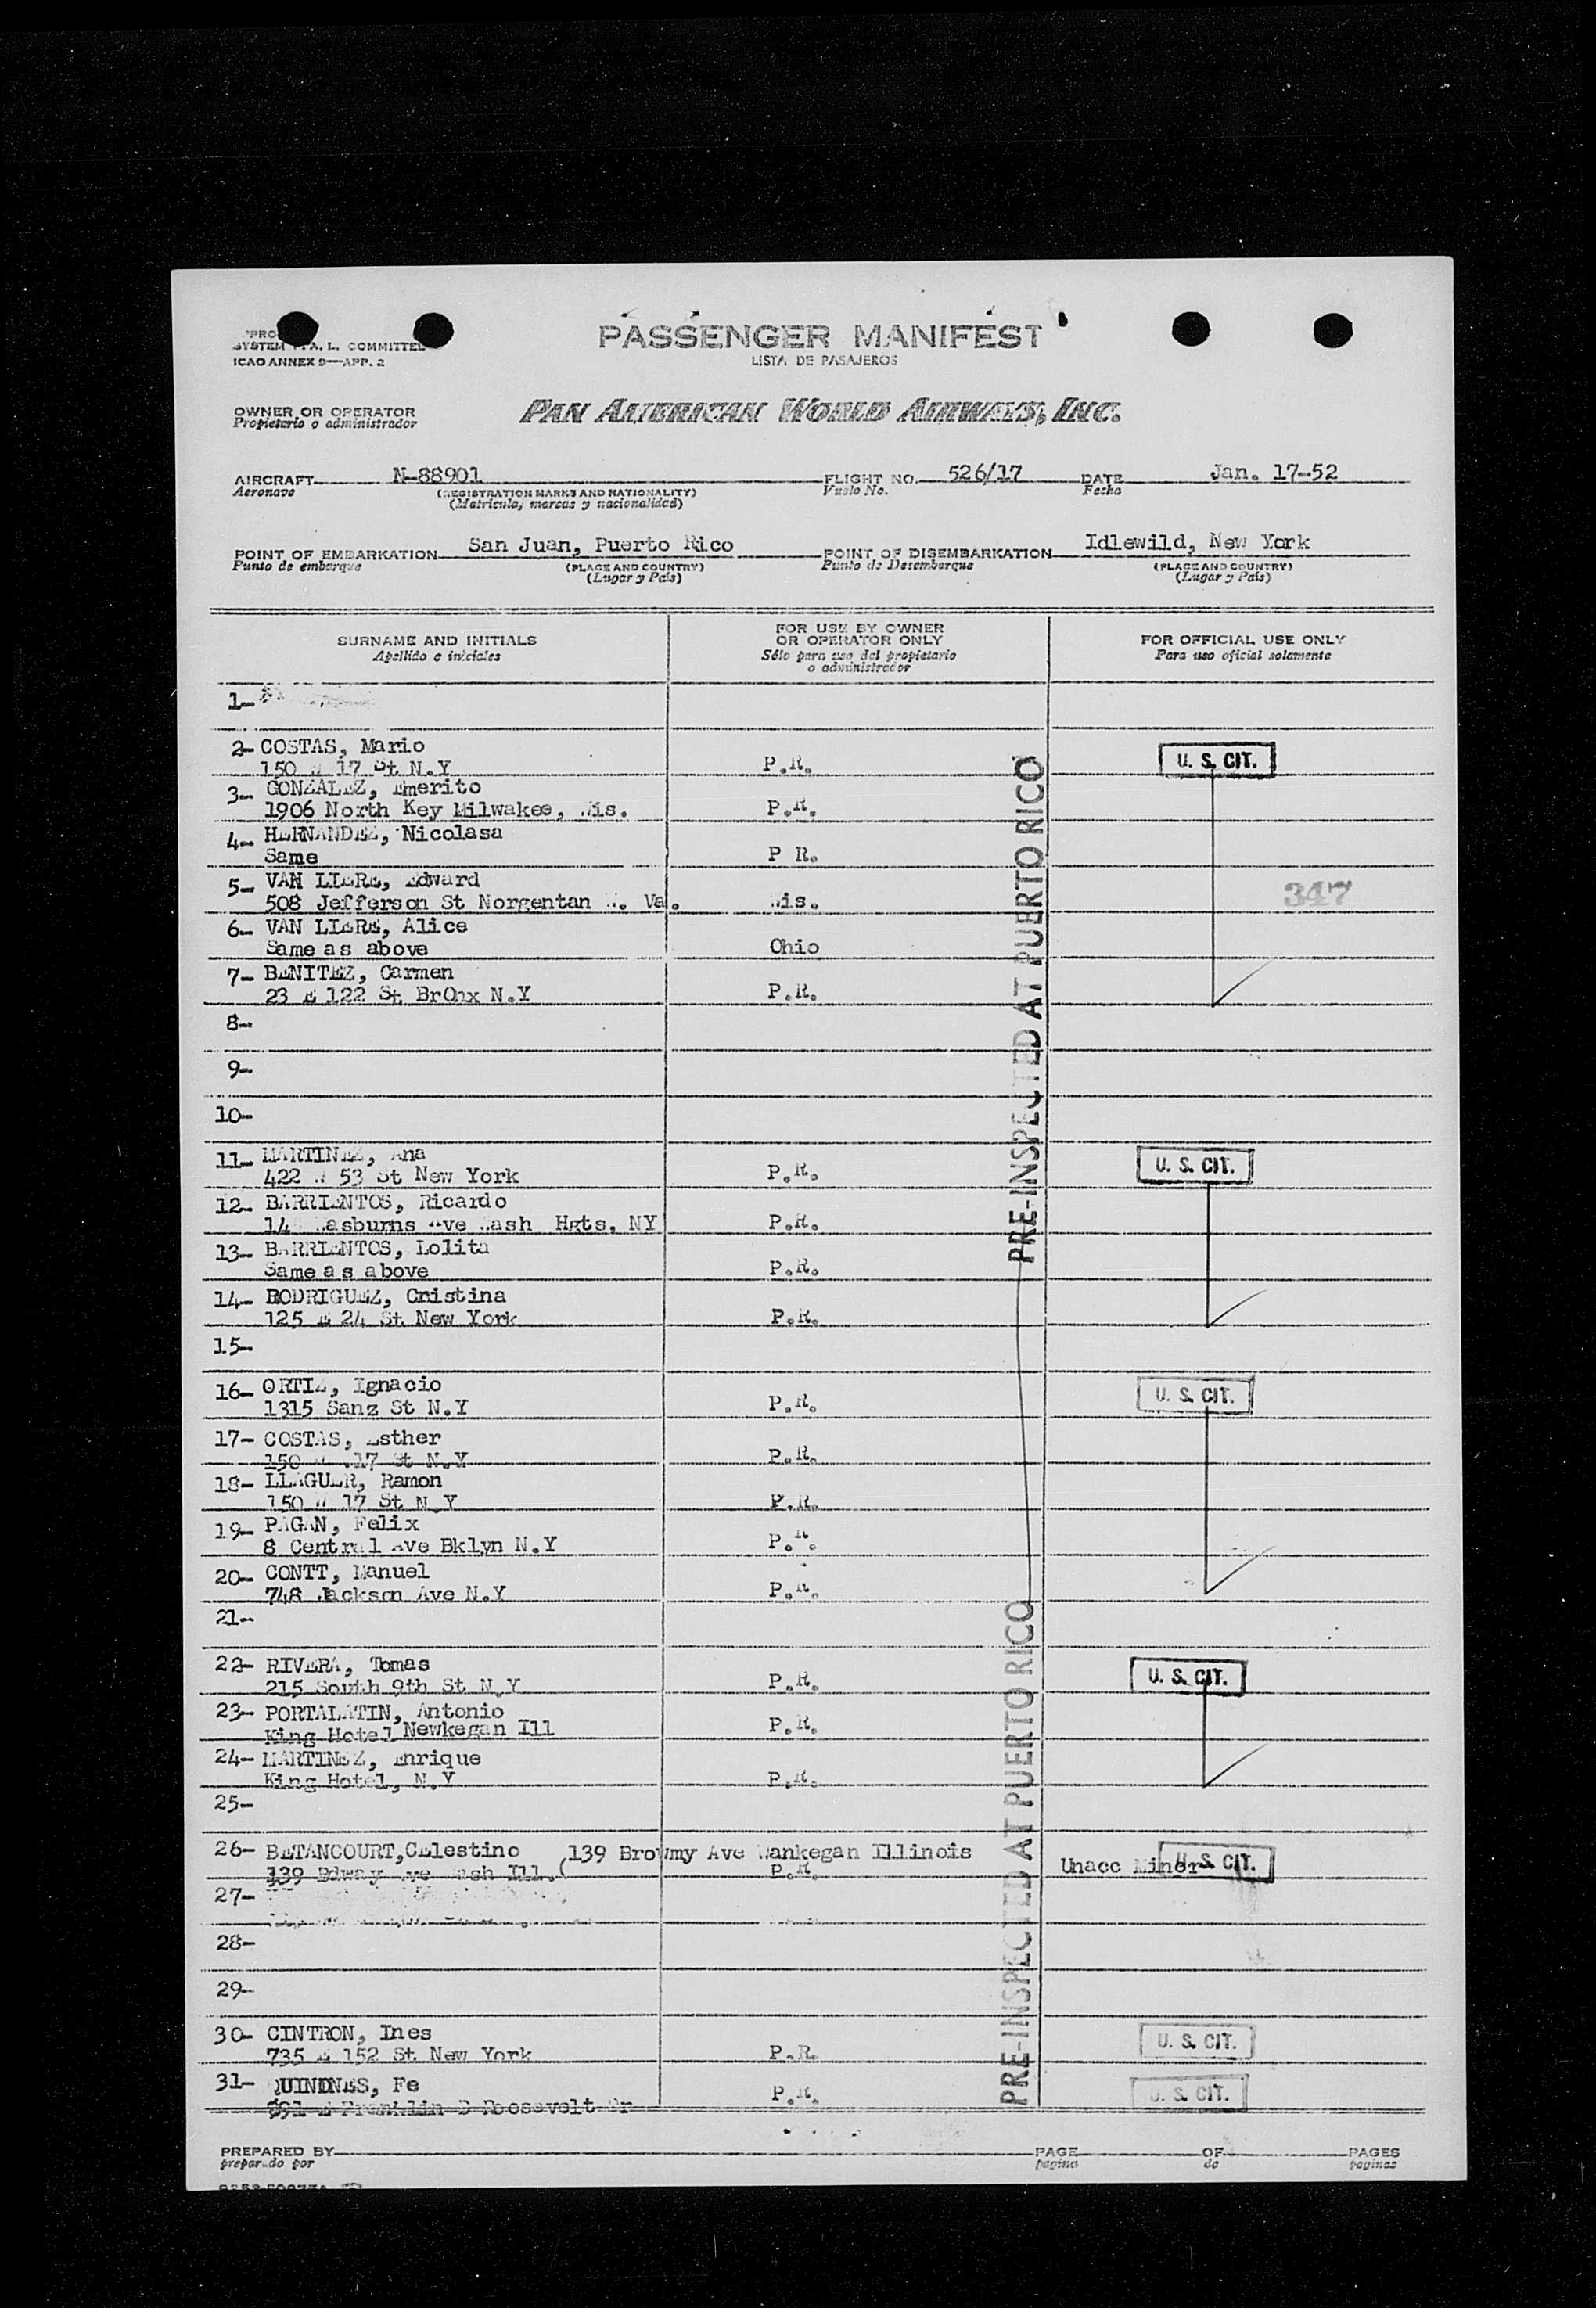 SYSTEM A. L. COMMITTEE
ICAO ANNEX 9—APP. 2
PASSENGER MANIFEST
LISTA DE PASAJEROS
OWNER OR OPERATOR
Propietario o administrador
PAN AMERICAN WORLD AIRWAYS, INC.
AIRCRAFT N-88901 FLIGHT NO. 526/17 DATE Jan. 17-52
Aeronave (REGISTRATION MARKS AND NATIONALITY) Vuelo No. Fecha
(Matricula, marcas y nacionalidad)
POINT OF EMBARKATION San Juan, Puerto Rico POINT OF DISEMBARKATION Idlewild, New York
Punto de embarque (PLACE AND COUNTRY) Punto de Desembarque (PLACE AND COUNTRY)
(Lugar y País) (Lugar y País)
SURNAME AND INITIALS
Apellido e iniciales
FOR USE BY OWNER
OR OPERATOR ONLY
Sólo para uso del propietario
o administrador
FOR OFFICIAL USE ONLY
Para uso oficial solamente
1-
2- COSTAS, Mario
150 W 17 St N.Y P.R. U. S. CIT.
3- GONZALEZ, Emerito
1906 North Key Milwakee, Wis. P.R.
4- HERNANDEZ, Nicolasa
Same P R.
5- VAN LIERE, Edward
508 Jefferson St Norgentan W. Va. Wis. 347
6- VAN LIERE, Alice
Same as above Ohio
7- BENITEZ, Carmen
23 E 122 St BrOnx N.Y P.R.
8-
9-
10-
PRE-INSPECTED AT PUERTO RICO
11- MARTINEZ, Ana
422 W 53 St New York P.R. U. S. CIT.
12- BARRIENTOS, Ricardo
Ave Wash Hgts, NY P.R.
13- BARRIENTOS, Lolita
Same as above P.R.
14- RODRIGUEZ, Cristina
125 E 24 St New York P.R.
15-
16- ORTIZ, Ignacio
1315 Sanz St N.Y P.R. U. S. CIT.
17- COSTAS, Esther
150 W 17 St N.Y P.R.
18- LLAGUER, Ramon
150 W 17 St N Y P.R.
19- PAGAN, Felix
8 Central Ave Bklyn N.Y P.R.
20- CONTT, Manuel
748 Jackson Ave N.Y P.R.
21-
22- RIVERA, Tomas
215 South 9th St N.Y P.R. U. S. CIT.
23- PORTALATIN, Antonio
King Hotel Newkegan Ill P.R.
24- MARTINEZ, Enrique
King Hotel, N.Y P.R.
25-
26- BETANCOURT, Celestino (139 Browmy Ave Wankegan Illinois
139 Bdway Ave Wash Ill. P.R. Unacc Minor U. S. CIT.
27-
28-
29-
PRE-INSPECTED AT PUERTO RICO
30- CINTRON, Ines
735 E 152 St New York P.R. U. S. CIT.
31- QUINONES, Fe P.R. U. S. CIT.
891 E Franklin D Roosevelt Dr
PREPARED BY PAGE OF PAGES
preparado por pagina de paginas